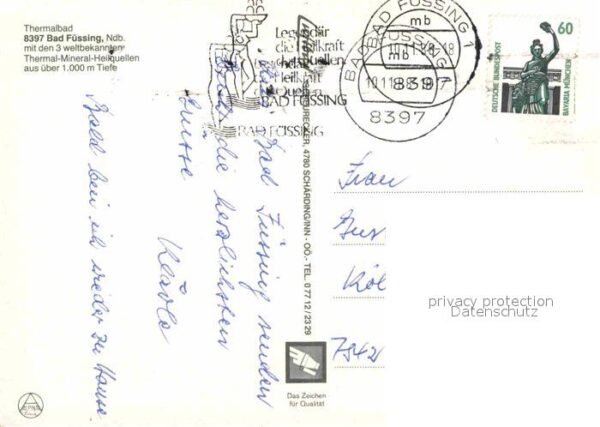 Thermalbad
8397 Bad Füssing, Ndb.
mit den 3 weltbekannten
Thermal-Mineral-Heilquellen
aus über 1.000 m Tiefe
Legendär
die Heilkraft
der Quellen
BAD FÜSSING
BAD FÜSSING
BAD FÜSSING 1
mb
10.11.88-18
8397
8397
60
DEUTSCHE BUNDESPOST
BAVARIA MÜNCHEN
4780 SCHÄRDING/INN - OÖ. - TEL. 0 77 12 / 23 29
Aus Bad Füssing senden
die herzlichsten
Grüsse
Bald bin ich wieder zu Hause
Frau
Köl
privacy protection
Datenschutz
Das Zeichen
für Qualität